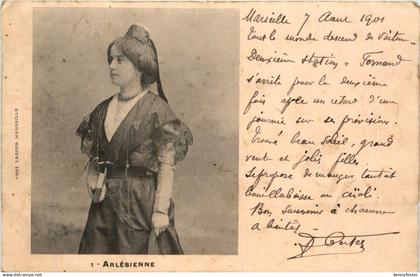 Marseille 7 Aout 1901
Tout le monde descend de voiture
Deuxième station = Fernand
s'arrête pour la deuxième
fois après un retard d'une
journée sur ses prévisions.
Trouvé beau soleil, grand
vent et jolies filles
se propose de manger tantôt
bouillabaisse ou aïoli.
Bon souvenir à chacun
a bientôt.
PHOT LACOUR MARSEILLE
1 - ARLÉSIENNE